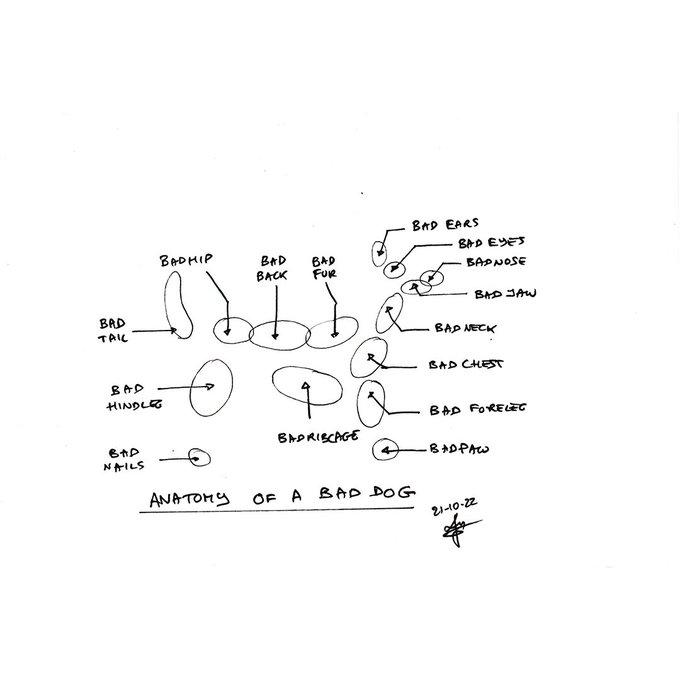 BAD EARS
BAD EYES
BADNOSE
BAD JAW
BADHIP
BAD
BACK
BAD
FUR
BAD
TAIL
BADNECK
BAD CHEST
BAD
HINDLEG
BAD FORELEG
BADRIBCAGE
BADPAW
BAD
NAILS
ANATOMY OF A BAD DOG
21-10-22